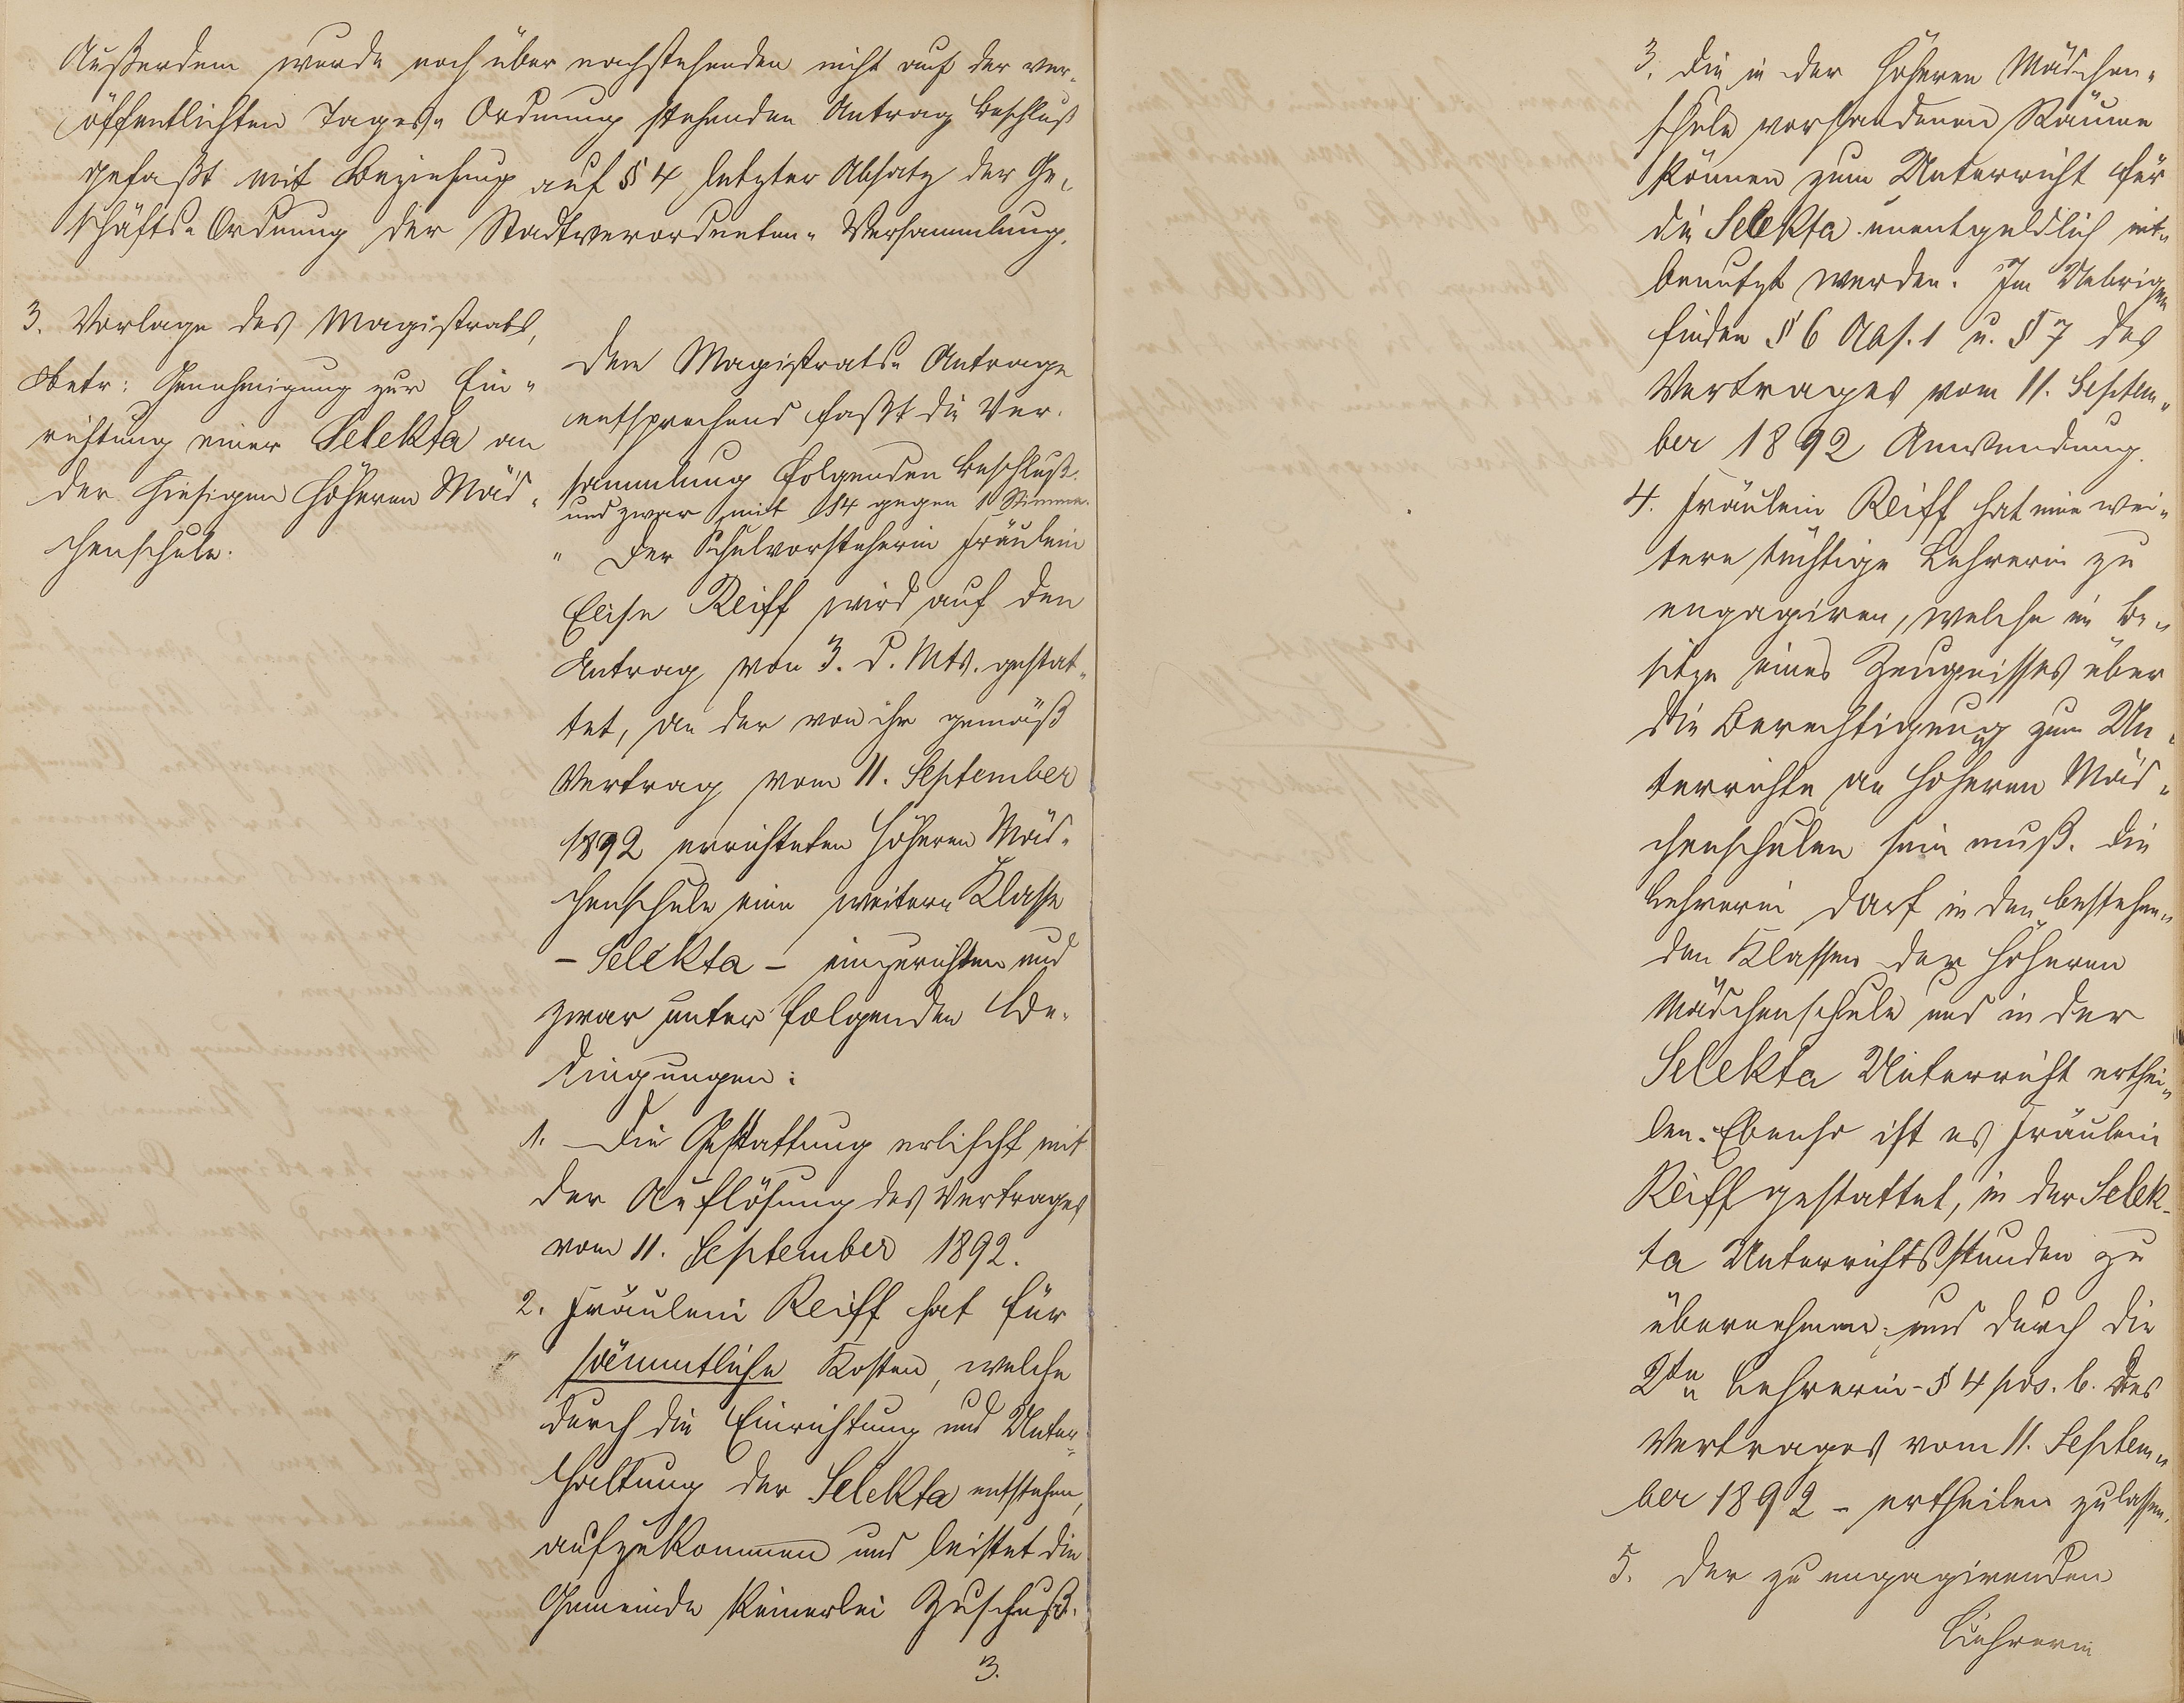 Außerdem wurde noch über nachstehenden nicht auf der ver-
öffentlichten Tages-Ordnung stehenden Antrag Beschluß
gefaßt mit Beziehung auf § 4 letzter Absatz der Ge-
schäfts-Ordnung der Stadtverordneten-Versammlung.
3. Vorlage des Magistrats,
betr: Genehmigung zur Ein-
richtung einer Selekta an
der hiesigen höheren Mäd-
chenschule.
Dem Magistrats-Antrage
entsprechend faßt die Ver-
sammlung folgenden Beschluß
und zwar mit 14 gegen 1 Stimme.
„ Der Schulvorsteherin Fräulein
Elise Reiff wird auf den
Antrag von 3. d. Mts. gestat-
tet, an der von ihr gemäß
Vertrag vom 11. September
1892 errichteten höheren Mäd-
chenschule eine weitere Klasse
– Selekta – einzurichten und
zwar unter folgenden Be-
dingungen:
1. Die Gestattung erlischt mit
der Auflösung des Vertrages
vom 11. September 1892.
2. Fräulein Reiff hat für
sämmtliche Kosten, welche
durch die Einrichtung und Unter-
haltung der Selekta entstehen,
aufzukommen und leistet die
Gemeinde keinerlei Zuschuß.
3.
3. Die in der höheren Mädchen-
schule vorhandenen Räume
können zum Unterricht für
die Selekta unentgeldlich mit-
benutzt werden. Im Uebrigen
finden § 6 Abs. 1 u. § 7 des
Vertrages vom 11. Septem-
ber 1892 Anwendung.
4. Fräulein Reiff hat eine wei-
tere tüchtige Lehrerin zu
engagiren, welche im Be-
sitze eines Zeugnisses über
die Berechtigung zum Un-
terrichte an höheren Mäd-
chenschulen sein muß. Die
Lehrerin darf in den bestehen-
den Klassen der höheren
Mädchenschule und in der
Selekta Unterricht erthei-
len. Ebenso ist es Fräulein
Reiff gestattet, in der Selek-
ta Unterrichtsstunden zu
übernehmen und durch die
2te Lehrerin - § 4 pos. b. des
Vertrages vom 11. Septem-
ber 1892 - ertheilen zu lassen.
5. Der zu engagirenden
Lehrerin